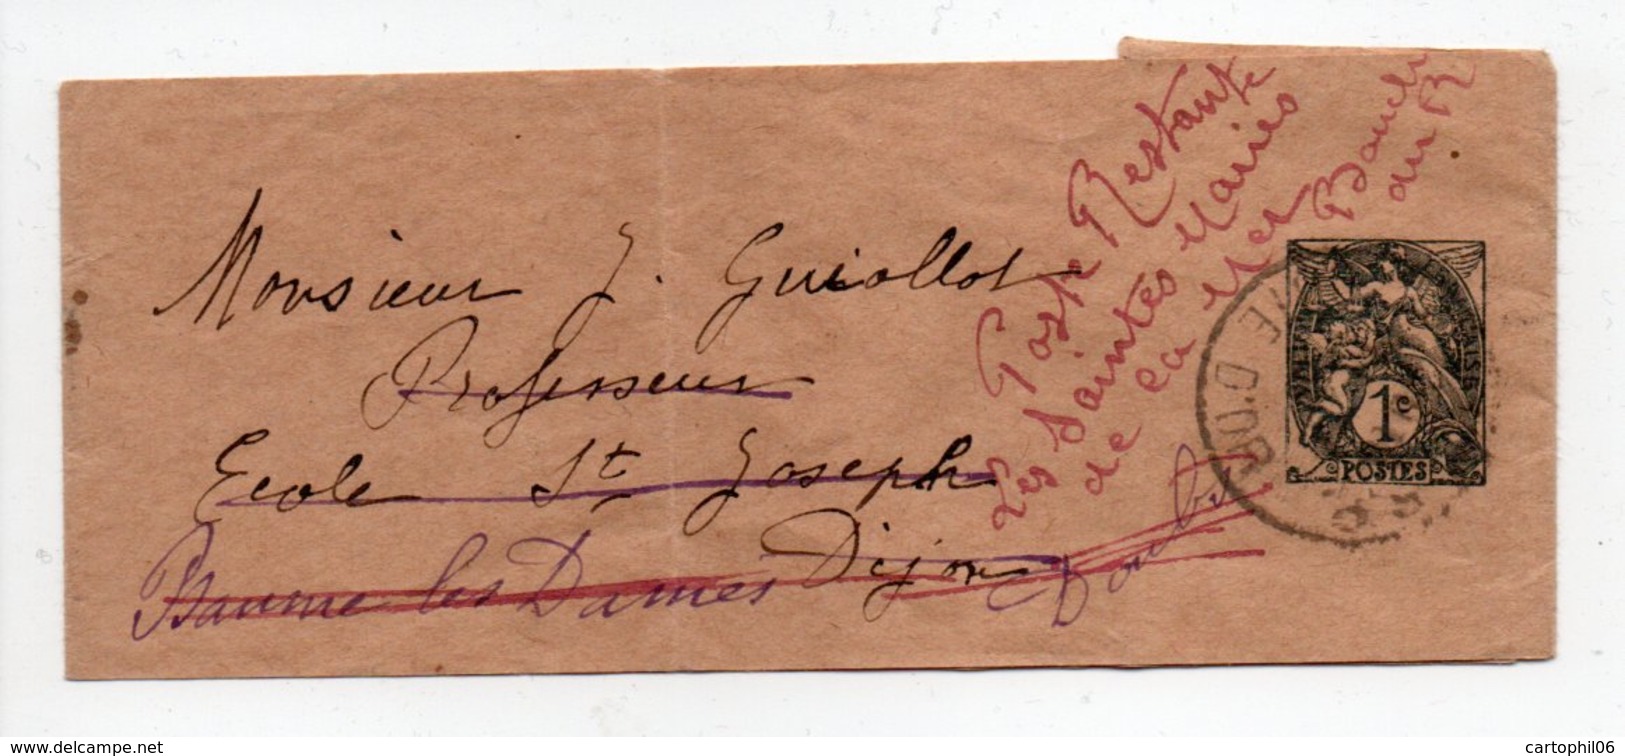 Monsieur J. Guiollot
Professeur
Ecole St Joseph
Dijon
Baume les Dames Doubs
Poste Restante
Les Saintes Maries
de la Mer Bouch
du R
RÉPUBLIQUE FRANÇAISE
1c
POSTES
D'OR
www.delcampe.net
cartophil06